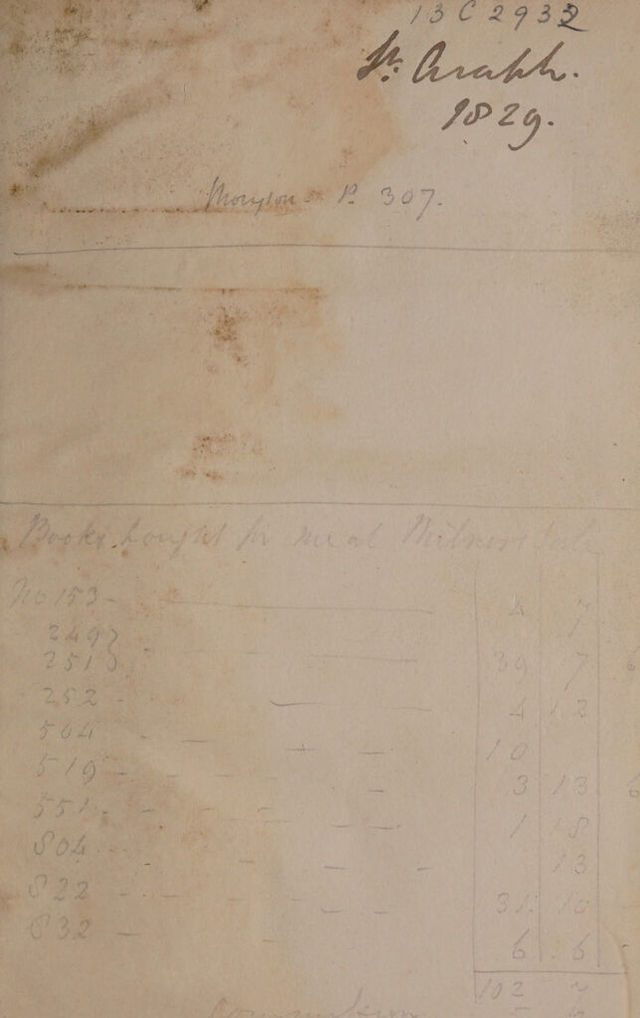 13 C 2932
St. Asaph.
1829.
P. 307.
Books bought for me at Milner's Sale
No 153 - 4 7
249 }
251 } 39 7 6
252 - 4 12
504 - 10
519 - 3 13 6
551 - 1 18
804 - 13
822 - 31 10
832 - 6 6
102